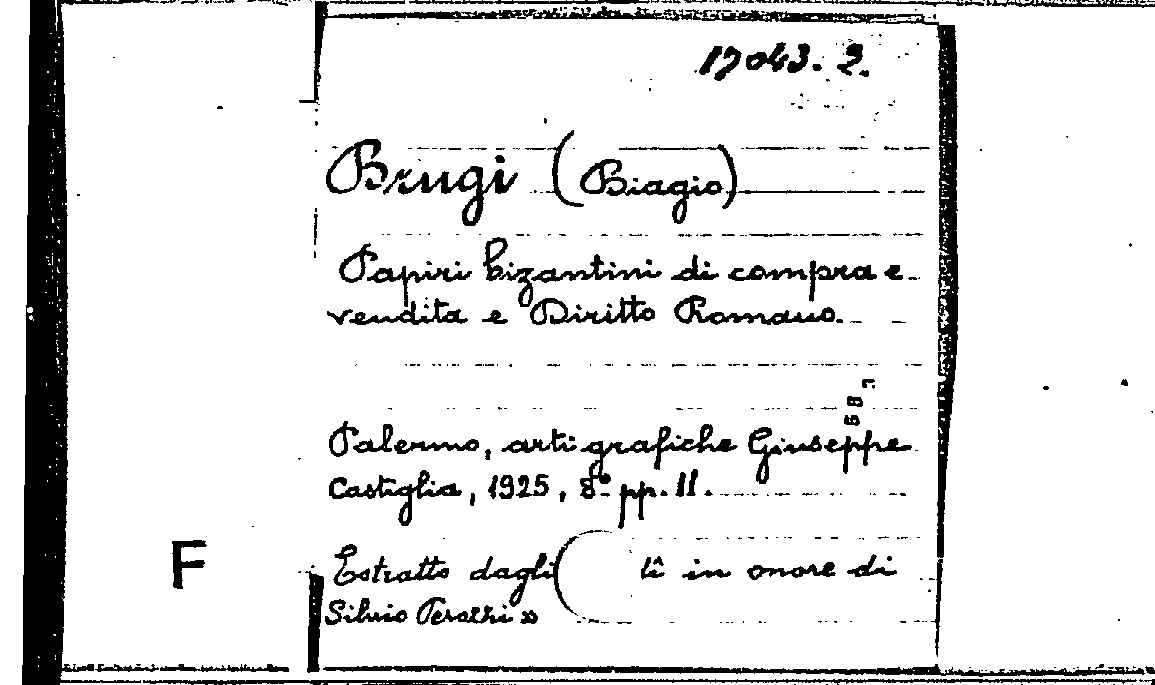 17043. 2.
Brugi (Biagio)
Papiri bizantini di compra e
vendita e Diritto Romano.
Palermo, arti grafiche Giuseppe
Castiglia, 1925, 8° pp. 11.
F
Estratto dagli tî in onore di
Silvio »